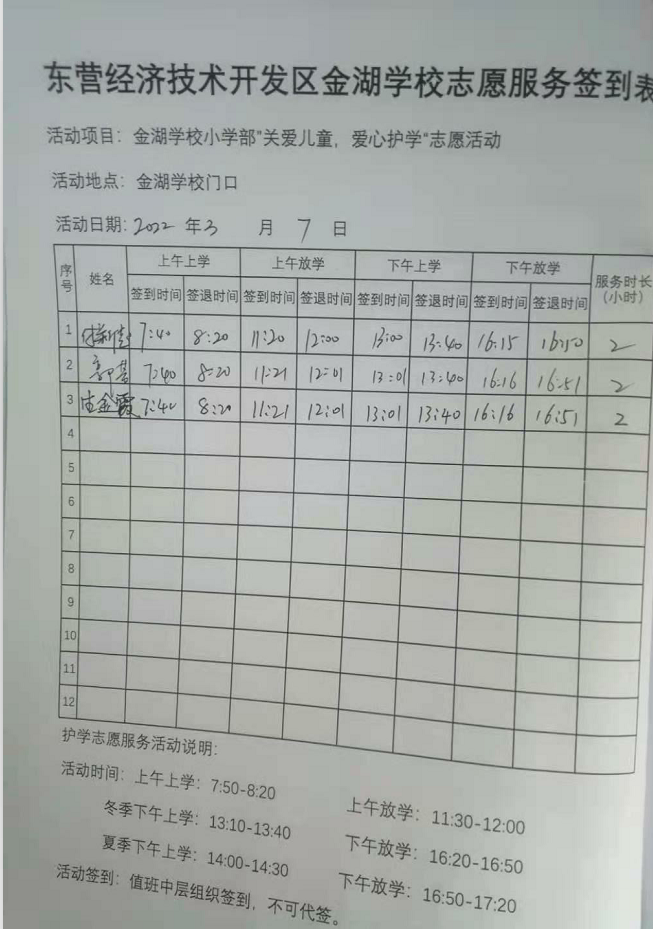 东营经济技术开发区金湖学校志愿服务签到表
活动项目：金湖学校小学部"关爱儿童，爱心护学"志愿活动
活动地点：金湖学校门口
活动日期：2022 年 3 月 7 日
序号 姓名 上午上学 上午放学 下午上学 下午放学 服务时长（小时）
签到时间 签退时间 签到时间 签退时间 签到时间 签退时间 签到时间 签退时间
1 7:40 8:20 11:20 12:00 13:00 13:40 16:15 16:50 2
2 7:40 8:20 11:21 12:01 13:01 13:40 16:16 16:51 2
3 7:40 8:20 11:21 12:01 13:01 13:40 16:16 16:51 2
4
5
6
7
8
9
10
11
12
护学志愿服务活动说明：
活动时间：上午上学：7:50-8:20 上午放学：11:30-12:00
冬季下午上学：13:10-13:40 下午放学：16:20-16:50
夏季下午上学：14:00-14:30 下午放学：16:50-17:20
活动签到：值班中层组织签到，不可代签。